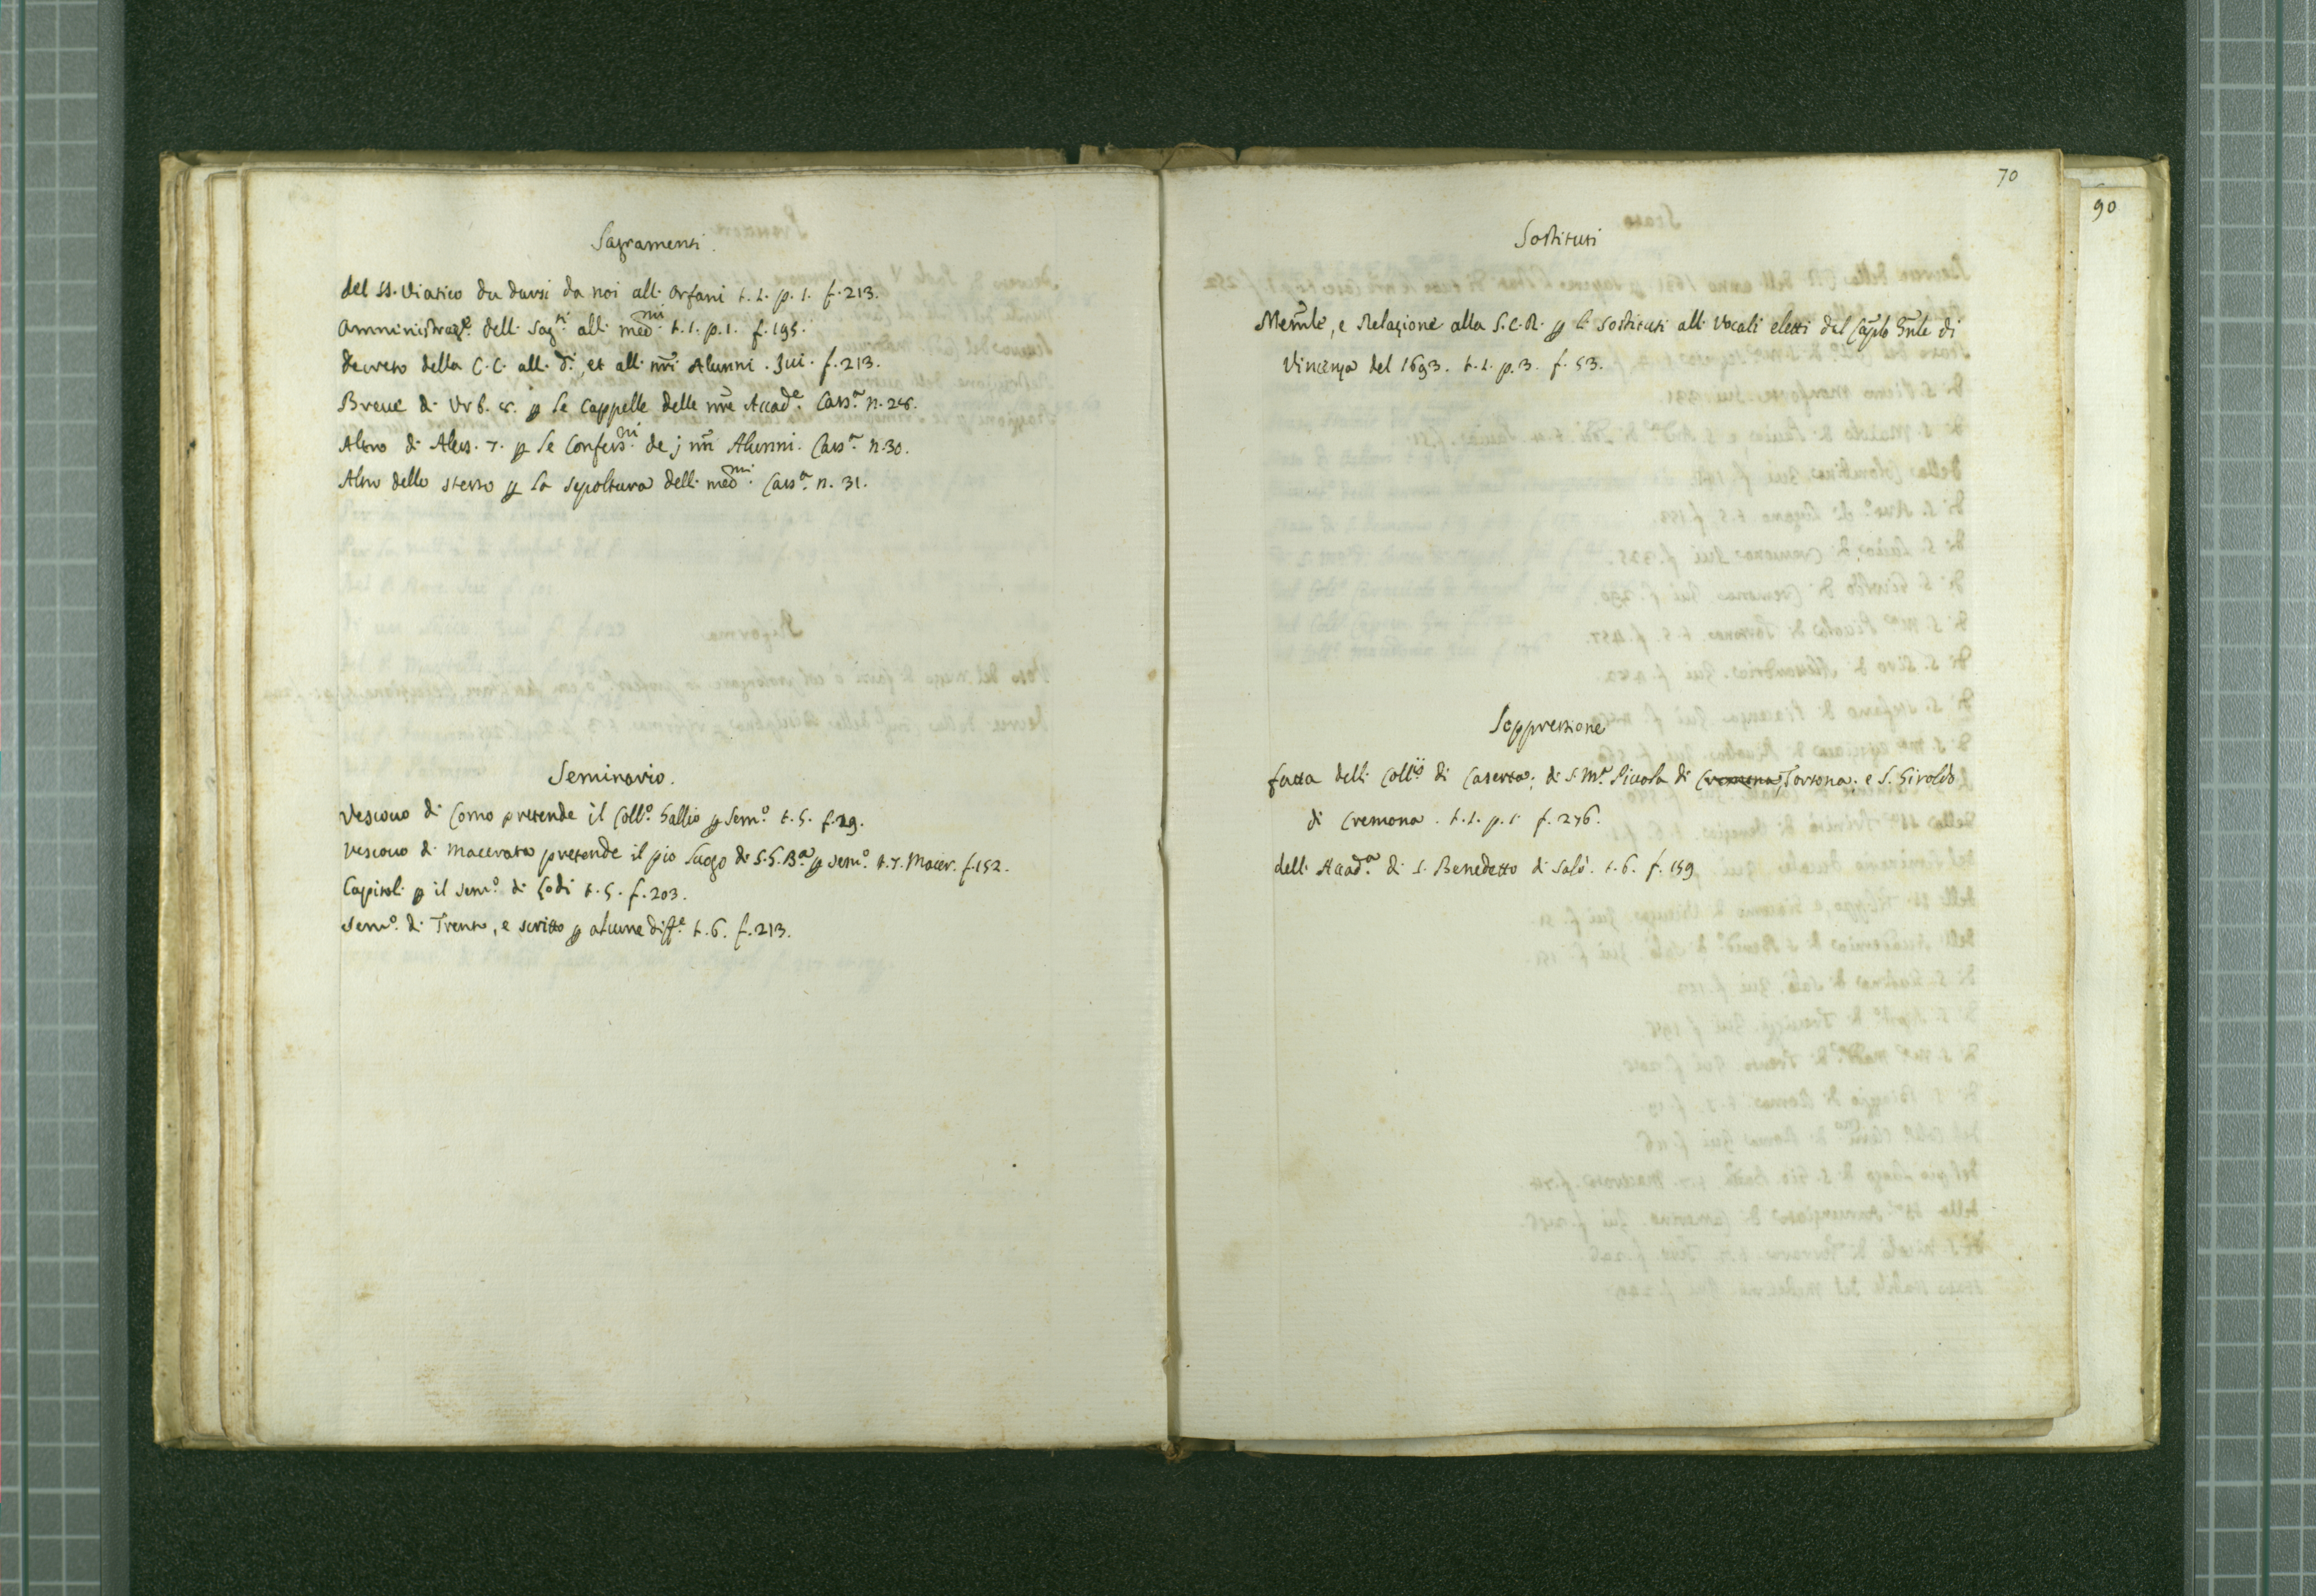 Sagramenti.
del SS. Viatico da darsi da noi alli Orfani t. 1. p. 1. f. 213.
Amministraz.e delli Sag.ti alli med.mi t. 1. p. 1. f. 195.
decreto della C. C. alli dì, et alli nr̄i Alunni. Iui. f. 213.
Breue di Urb. 8. ꝑ le Cappelle delle nr̄e Accad.e Cass.a n. 28.
Altro di Aless. 7. ꝑ le Confess.ni de j nr̄i Alunni. Cass.a n. 30.
Altro dello stesso ꝑ la sepoltura delli med.mi Cass.a n. 31.
Seminario.
Vescouo di Como pretende il Coll.o Gallio ꝑ Sem.o t. 5. f. 29.
Vescouo di Macerata pretende il pio Luogo di S. G. B.a ꝑ Sem.o t. 7. Macer. f. 152.
Capitoli ꝑ il Sem.o di Lodi t. 5. f. 203.
Sem.o di Trento, e scritto ꝑ alcune diff.e t. 6. f. 213.
70
90
Sostituti
Memle, e Relazione alla S. C. R. ꝑ li Sostituti alli Vocali eletti del Caplo Gn̄le di
Vincenza del 1693. t. 1. p. 3. f. 53.
Soppressione
fatta delli Coll.ii di Caserta; di S. M.a Piccola di Cremona, Tortona; e S. Giroldo
di Cremona. t. 1. p. 1. f. 276.
dell' Accad.a di S. Benedetto di Salò. t. 6. f. 159